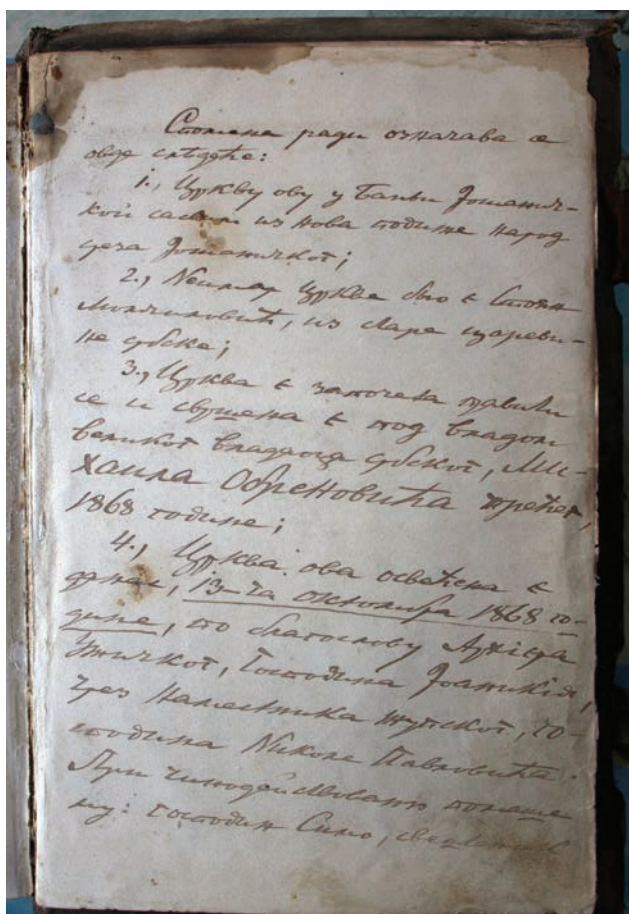 Спомена ради означава се
овде слѣдеће:
1., Цркву ову у Баньи Јошанич-
кой сазида из нова подиже народ
среза Јошаничког;
2., Неимар Цркве био є Стоян
из Старе
не србске;
3., Црква є започета правили
се и свршена є под владом
великог владаоца србског, Ми-
хаила Обреновића трећег,
1868 године;
4., Црква ова освећена є
данас, 13-га октомвра 1868 го-
дине, по благослову Архієра
Ужичког, Господина Јоаникія,
чрез Намесника жупског, го-
сподина Николе Павловића.
При чинодѣйствованю помаше
му: господин Симо,